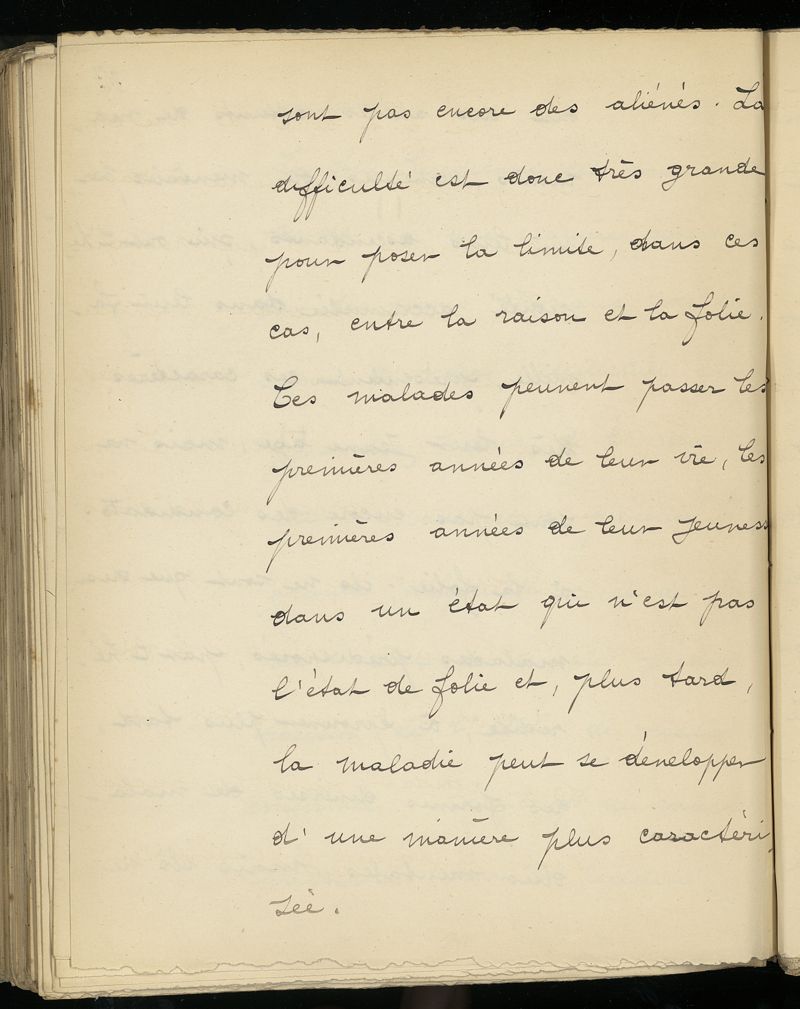 sont pas encore des aliénés. La
difficulté est donc très grande
pour poser la limite, dans ces
cas, entre la raison et la folie.
Ces malades peuvent passer les
premières années de leur vie, les
premières années de leur jeuness
dans un état qui n'est pas
l'état de folie et, plus tard,
la maladie peut se développer
d'une manière plus caractéri
sée.